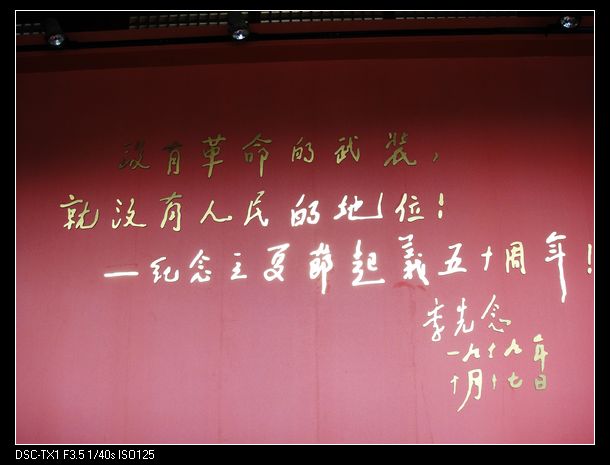 没有革命的武装，
就没有人民的地位！
—纪念立夏節起義五十周年！
李先念
一九七九年
十月十七日
DSC-TX1 F3.5 1/40s ISO125